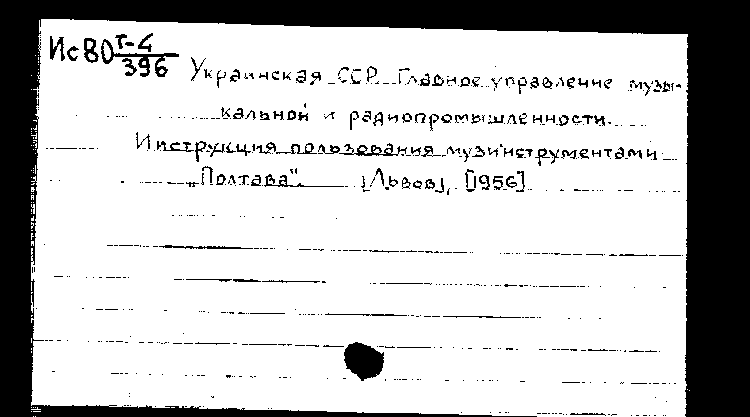 Ис80 Т-4/396
Украинская ССР. Главное управление музы-
кальной и радиопромышленности.
Инструкция пользования музинструментами
„Полтава". [Львов], [1956]